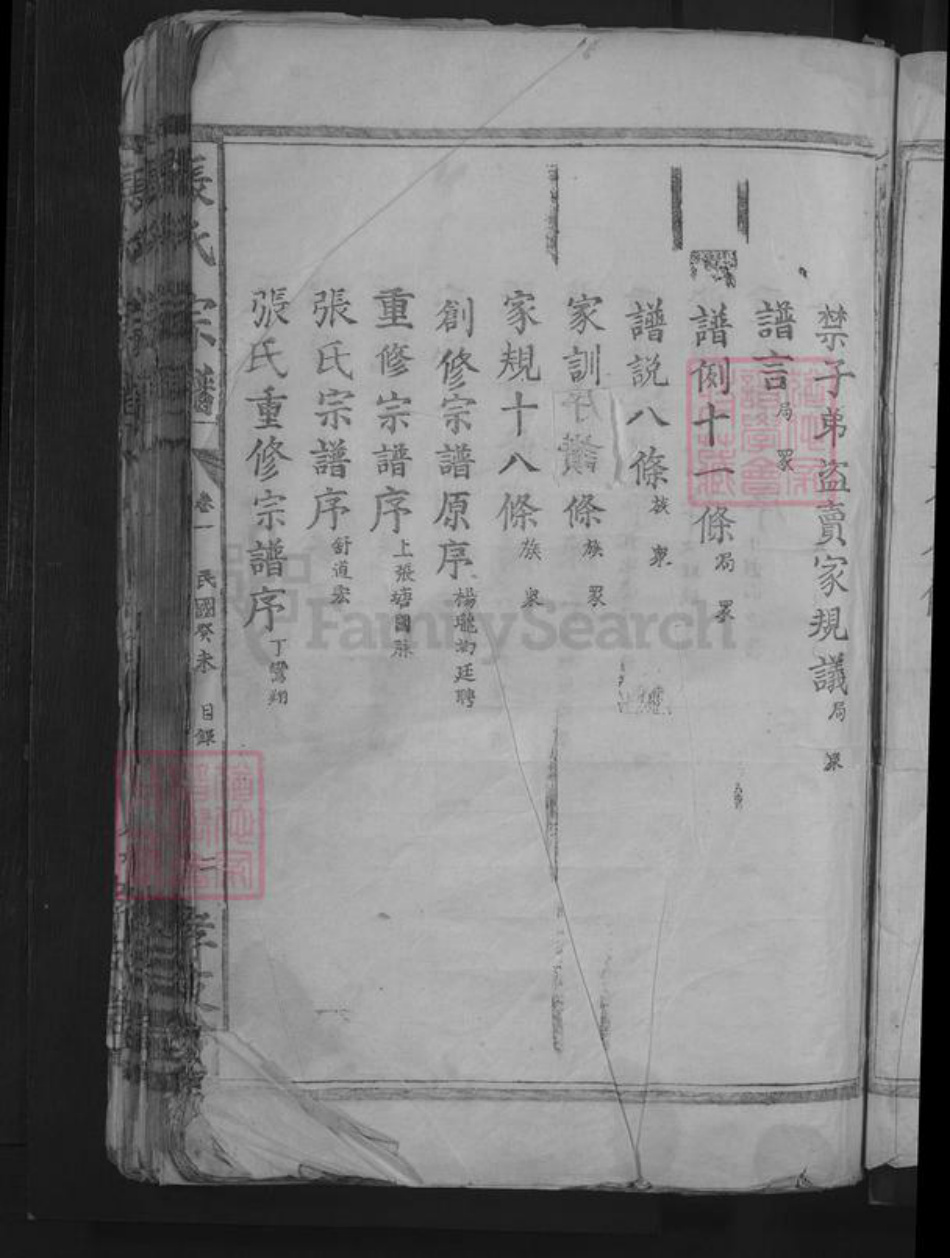 禁子弟盜賣家規議 局 眾
譜言 局 眾
譜例十一條 局 眾
譜説八條 族 眾
家訓 條 族 眾
家規十八條 族 眾
創修宗譜原序 楊 廷聘
重修宗譜序 上張塘國
張氏宗譜序 舒道宏
張氏重修宗譜序 丁鷺翔
張氏宗譜 卷一 民國癸未 目錄 二
FamilySearch